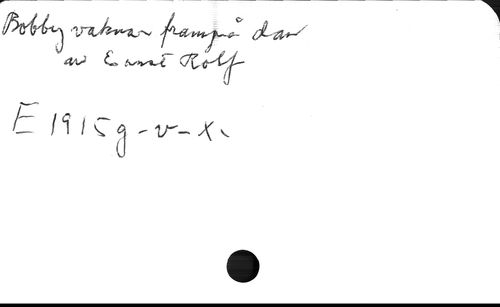 Bobby vaknar frampå dan
av Ernst Rolf
E 1915 g-v-x.